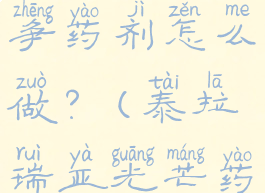 zhēng yào jì zěn me
争药剂怎么
zuò tài lā
做？（泰拉
ruì yà guāng máng yào
瑞亚光芒药